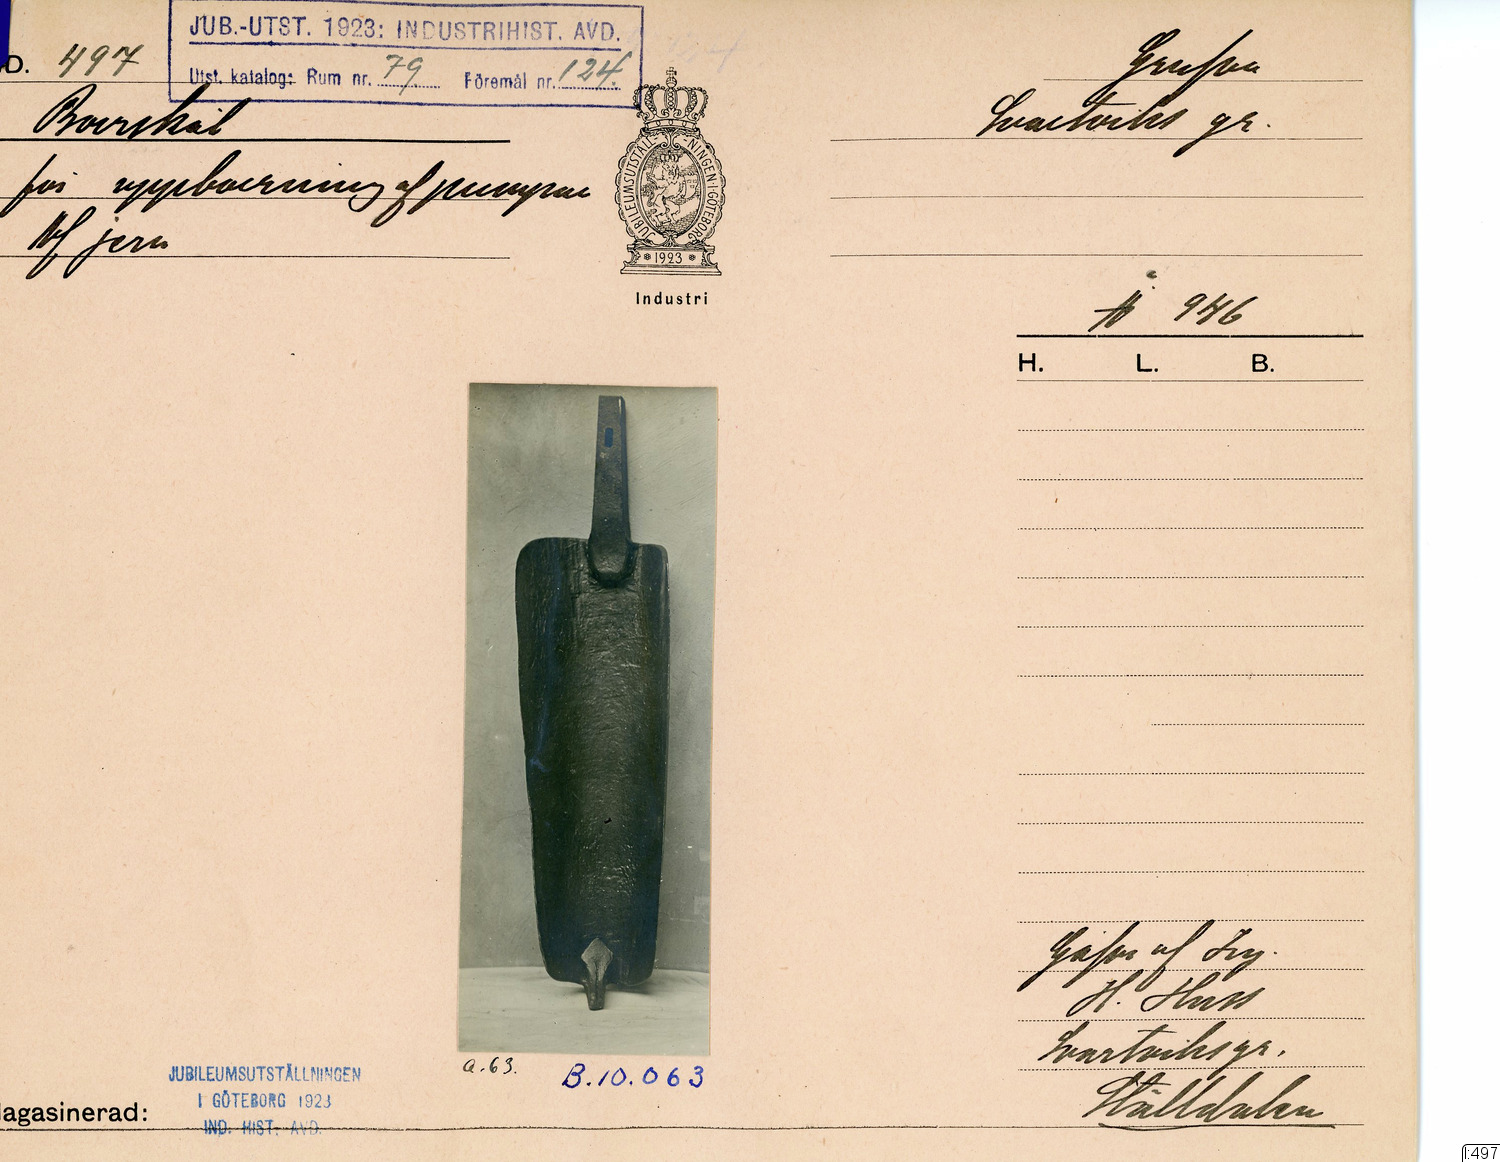 JUB.-UTST. 1923: INDUSTRIHIST. AVD.
Utst. katalog: Rum nr. 79 Föremål nr. 124
D. 497
Borrskål
för uppborrning af pumpar
Af jern
JUBILEUMSUTSTÄLLNINGEN I GÖTEBORG
* 1923 *
Industri
Grufva
Svartviks gr.
946
H. L. B.
Gåfva af Ing.
H. Huss
Svartviksgr.
Ställdalen
a.63.
B.10.063
JUBILEUMSUTSTÄLLNINGEN
I GÖTEBORG 1923
IND. HIST. AVD.
agasinerad:
:497